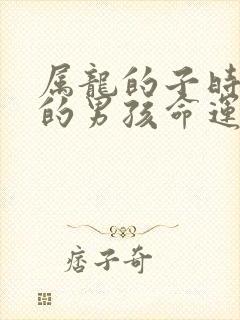 属龍的子時
的男孩命運
痞子奇